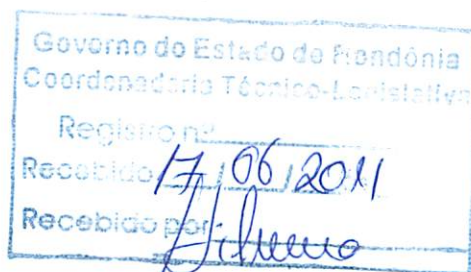 Governo do Estado de Rondônia
Coordenadoria Técnico-Legislativa
Registro nº
Recebido 17 / 06 / 2011
Recebido por